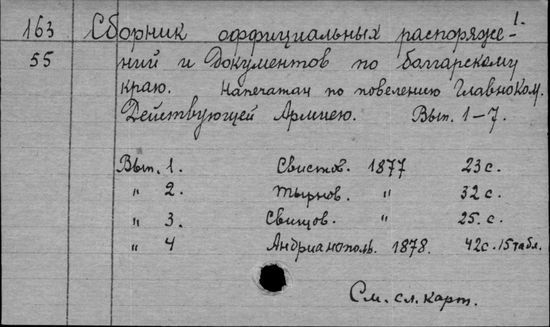 1.
163 Сборник оффициальных распоряже-
55 ний и документов по болгарскому
краю. Напечатан по повелению Главноком.
Действующей Армиею. Вып. 1-7.
Вып. 1. Свистов. 1877 23 с.
" 2. Тырнов. " 32 с.
" 3. Свищов. " 25. с.
" 4 Андрианополь. 1878. 42 с. 15 табл.
См. сл. карт.